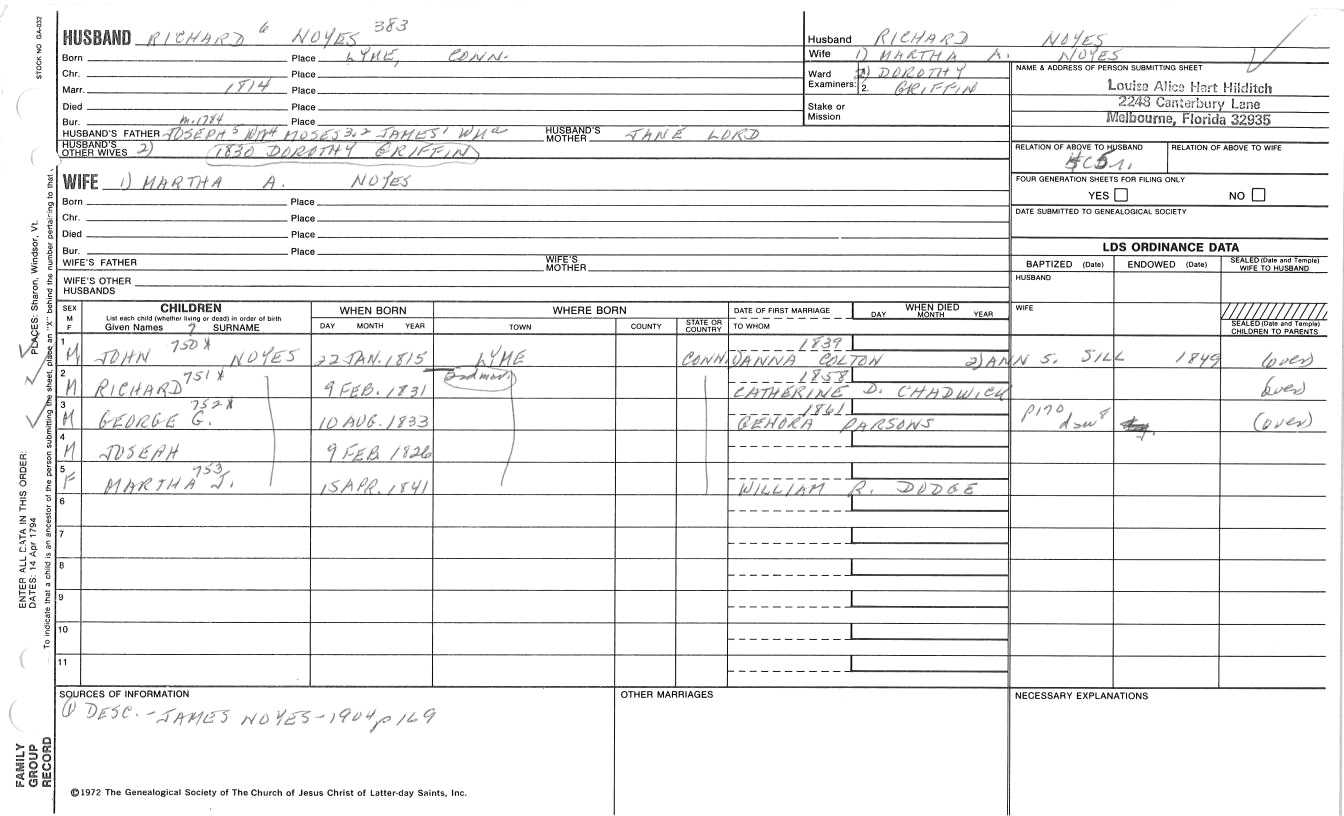 STOCK NO GA-032
HUSBAND RICHARD 6 NOYES 383
Born Place LYME, CONN.
Chr. Place
Marr. 1814 Place
Died Place
Bur. Place
m. 1784
HUSBAND'S FATHER JOSEPH 5 WM 4 MOSES 3,2 JAMES 1 WM a HUSBAND'S MOTHER JANE LORD
HUSBAND'S OTHER WIVES 2) 1830 DOROTHY GRIFFIN
Husband RICHARD NOYES
Wife 1) MARTHA A. NOYES
Ward 2) DOROTHY
Examiners: 2. GRIFFIN
Stake or
Mission
NAME & ADDRESS OF PERSON SUBMITTING SHEET
Louise Alice Hart Hilditch
2248 Canterbury Lane
Melbourne, Florida 32935
RELATION OF ABOVE TO HUSBAND RELATION OF ABOVE TO WIFE
FOUR GENERATION SHEETS FOR FILING ONLY
YES NO
DATE SUBMITTED TO GENEALOGICAL SOCIETY
WIFE 1) MARTHA A. NOYES
Born Place
Chr. Place
Died Place
Bur. Place
WIFE'S FATHER WIFE'S MOTHER
WIFE'S OTHER HUSBANDS
LDS ORDINANCE DATA
BAPTIZED (Date) ENDOWED (Date) SEALED (Date and Temple) WIFE TO HUSBAND
HUSBAND
WIFE
SEALED (Date and Temple) CHILDREN TO PARENTS
SEX M F
CHILDREN
List each child (whether living or dead) in order of birth
Given Names 7 SURNAME
WHEN BORN
DAY MONTH YEAR
WHERE BORN
TOWN COUNTY STATE OR COUNTRY
DATE OF FIRST MARRIAGE
TO WHOM
WHEN DIED
DAY MONTH YEAR
1 M JOHN 750 X NOYES 22 JAN. 1815 LYME CONN. 1839 JANNA COLTON 2) ANN S. SILL 1849 (over)
2 M RICHARD 751 X 9 FEB. 1831 (2nd mar.) 1858 CATHERINE D. CHADWICK (over)
3 M GEORGE G. 752 X 10 AUG. 1833 1861 QEHORA PARSONS p170 (over)
4 M JOSEPH 9 FEB. 1826
5 F MARTHA J. 753 15 APR. 1841 WILLIAM R. DODGE
6
7
8
9
10
11
SOURCES OF INFORMATION
① DESC. - JAMES NOYES - 1904 p 169
OTHER MARRIAGES
NECESSARY EXPLANATIONS
©1972 The Genealogical Society of The Church of Jesus Christ of Latter-day Saints, Inc.
FAMILY
GROUP
RECORD
ENTER ALL DATA IN THIS ORDER:
DATES: 14 Apr 1794
PLACES: Sharon, Windsor, Vt.
To indicate that a child is an ancestor of the person submitting the sheet, place an "X" behind the number pertaining to that